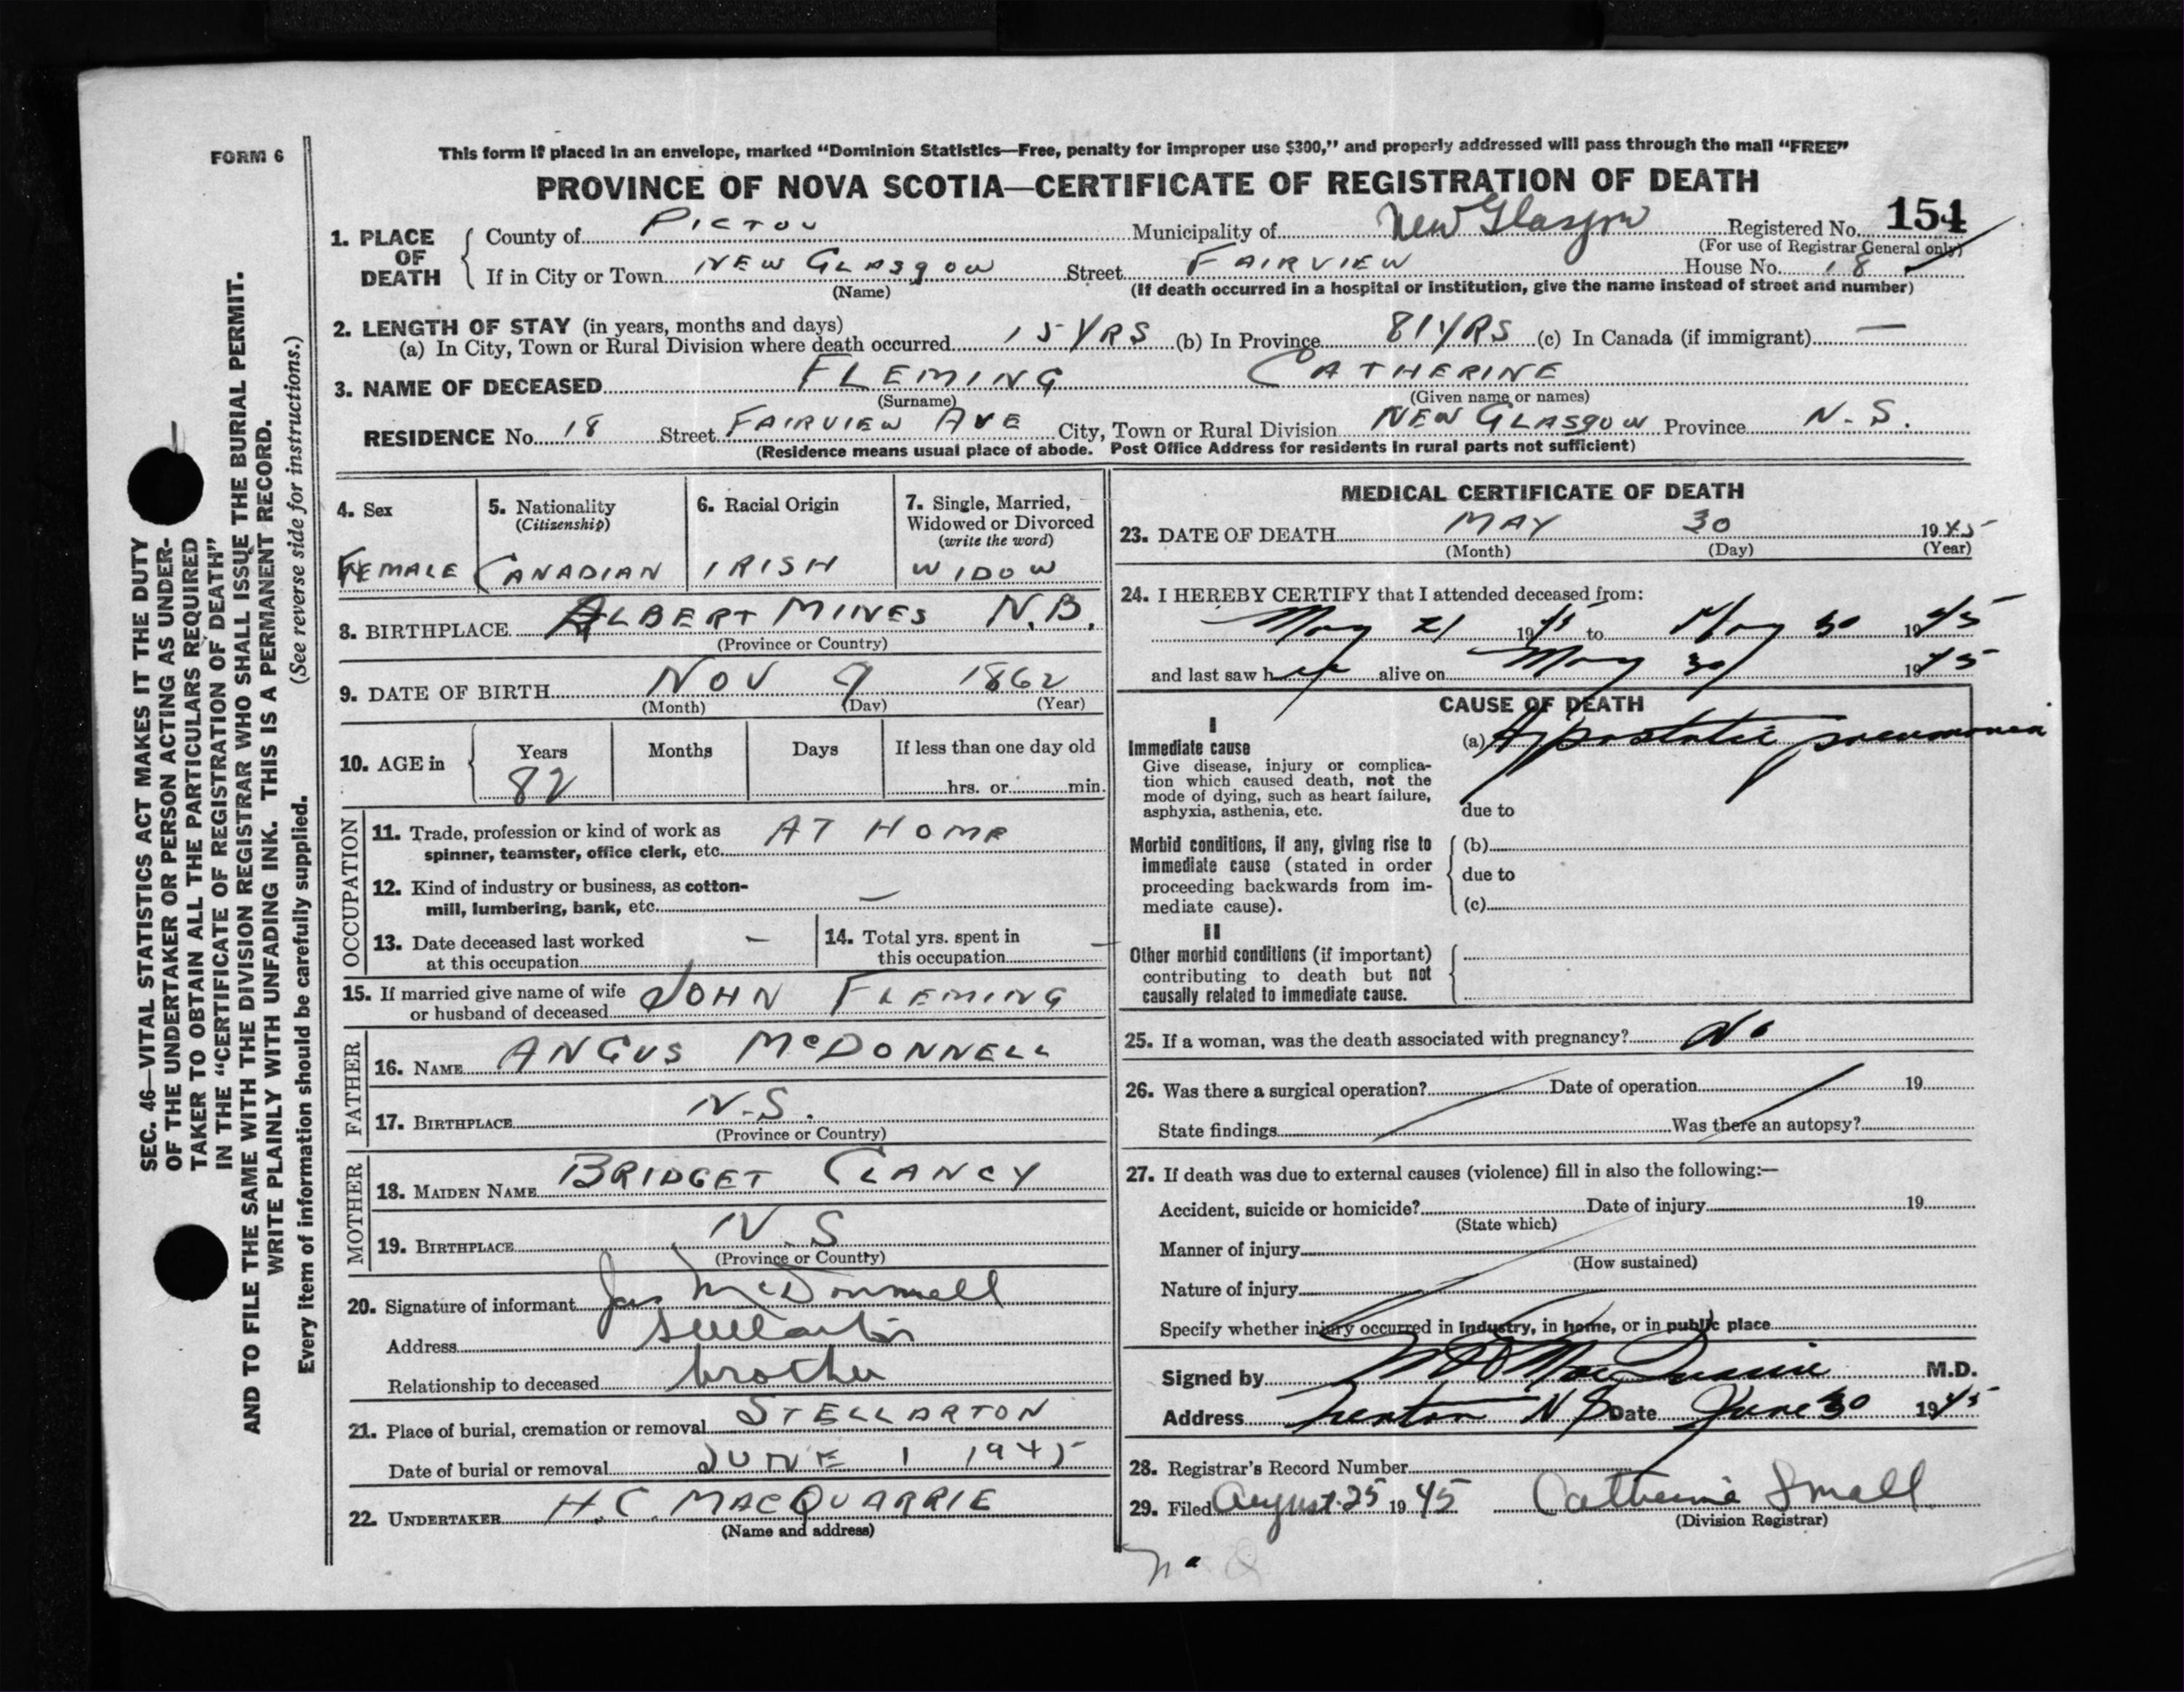 FORM 6
This form if placed in an envelope, marked “Dominion Statistics—Free, penalty for improper use $300,” and properly addressed will pass through the mail “FREE”
PROVINCE OF NOVA SCOTIA—CERTIFICATE OF REGISTRATION OF DEATH
1. PLACE OF DEATH County of PICTOU Municipality of New Glasgow Registered No. 154
(For use of Registrar General only)
If in City or Town NEW GLASGOW Street FAIRVIEW House No. 18
(Name) (If death occurred in a hospital or institution, give the name instead of street and number)
2. LENGTH OF STAY (in years, months and days)
(a) In City, Town or Rural Division where death occurred 15 YRS (b) In Province 81 YRS (c) In Canada (if immigrant) —
3. NAME OF DECEASED FLEMING CATHERINE
(Surname) (Given name or names)
RESIDENCE No. 18 Street FAIRVIEW AVE City, Town or Rural Division NEW GLASGOW Province N.S.
(Residence means usual place of abode. Post Office Address for residents in rural parts not sufficient)
4. Sex 5. Nationality (Citizenship) 6. Racial Origin 7. Single, Married, Widowed or Divorced (write the word)
FEMALE CANADIAN IRISH WIDOW
8. BIRTHPLACE ALBERT MINES N.B.
(Province or Country)
9. DATE OF BIRTH NOV 9 1862
(Month) (Day) (Year)
10. AGE in Years Months Days If less than one day old
82 hrs. or min.
OCCUPATION
11. Trade, profession or kind of work as AT HOME
spinner, teamster, office clerk, etc.
12. Kind of industry or business, as cotton-
mill, lumbering, bank, etc. —
13. Date deceased last worked —
at this occupation
14. Total yrs. spent in
this occupation —
15. If married give name of wife JOHN FLEMING
or husband of deceased
FATHER
16. NAME ANGUS McDONNELL
17. BIRTHPLACE N.S.
(Province or Country)
MOTHER
18. MAIDEN NAME BRIDGET CLANCY
19. BIRTHPLACE N.S
(Province or Country)
20. Signature of informant Jas McDonnell
Address Stellarton
Relationship to deceased brother
21. Place of burial, cremation or removal STELLARTON
Date of burial or removal JUNE 1 1945
22. UNDERTAKER H.C. MACQUARRIE
(Name and address)
MEDICAL CERTIFICATE OF DEATH
23. DATE OF DEATH MAY 30 1945
(Month) (Day) (Year)
24. I HEREBY CERTIFY that I attended deceased from:
May 21 1945 to May 30 1945
and last saw her alive on May 30 1945
CAUSE OF DEATH
I
Immediate cause (a) Hypostatic pneumonia
Give disease, injury or complica-
tion which caused death, not the
mode of dying, such as heart failure,
asphyxia, asthenia, etc. due to
Morbid conditions, if any, giving rise to (b)
immediate cause (stated in order due to
proceeding backwards from im-
mediate cause). (c)
II
Other morbid conditions (if important)
contributing to death but not
causally related to immediate cause.
25. If a woman, was the death associated with pregnancy? No
26. Was there a surgical operation? Date of operation 19
State findings Was there an autopsy?
27. If death was due to external causes (violence) fill in also the following:—
Accident, suicide or homicide? Date of injury 19
(State which)
Manner of injury
(How sustained)
Nature of injury
Specify whether injury occurred in industry, in home, or in public place
Signed by MacQuarrie M.D.
Address Trenton N S Date June 30 1945
28. Registrar's Record Number
29. Filed August 25 1945 Catherine Small
(Division Registrar)
SEC. 46—VITAL STATISTICS ACT MAKES IT THE DUTY
OF THE UNDERTAKER OR PERSON ACTING AS UNDER-
TAKER TO OBTAIN ALL THE PARTICULARS REQUIRED
IN THE “CERTIFICATE OF REGISTRATION OF DEATH”
AND TO FILE THE SAME WITH THE DIVISION REGISTRAR WHO SHALL ISSUE THE BURIAL PERMIT.
WRITE PLAINLY WITH UNFADING INK. THIS IS A PERMANENT RECORD.
Every item of information should be carefully supplied. (See reverse side for instructions.)